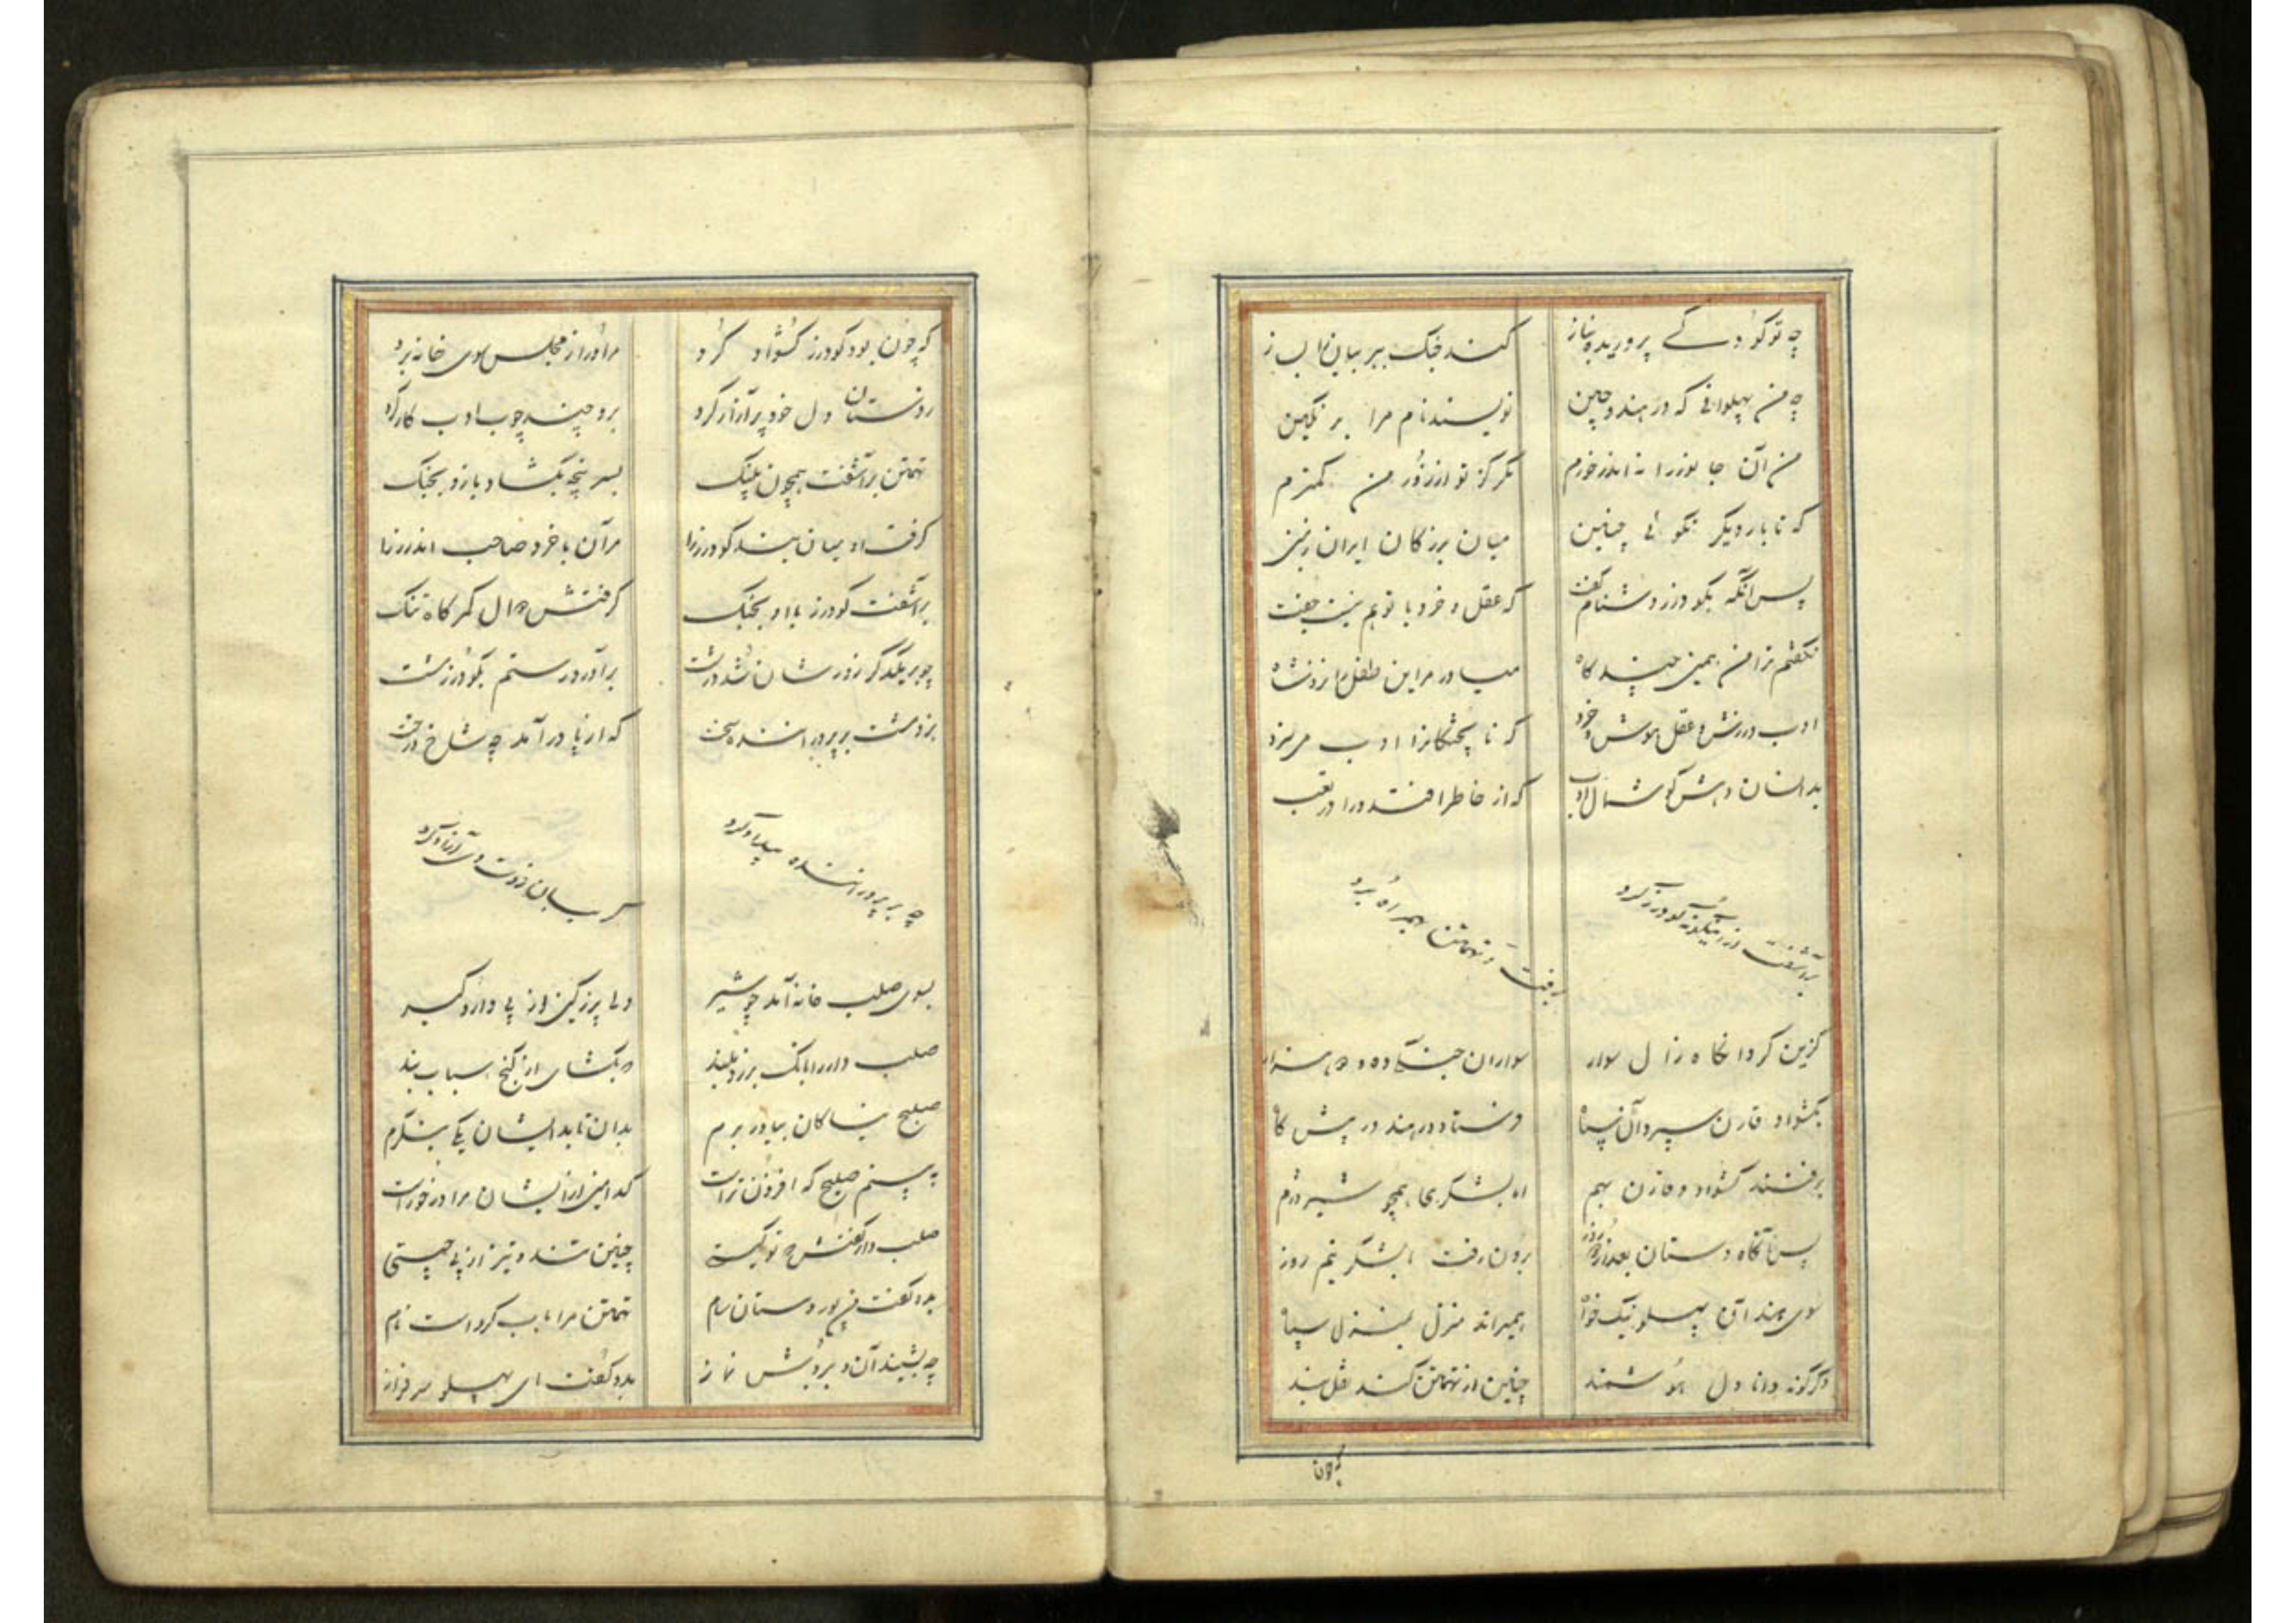 چه تو کودکے پروریده بناز
کند جنک ببر بیان را بساز
چه من پهلوانی که در هند و چین
نویسند نام مرا بر نکین
من آن جا نوزرا نه اندر خورم
مکر کز تو از زور من کمترم
که تا بار دیکر نکوئی چنین
میان بزرکان ایران زمین
پس آنکه بکودرز دشنام کفت
که عقل و خرد با تو هم نیست جفت
نکفتم ترا من همین چند کاه
میاور مر این طفل را نزد شاه
ادب ورزش و عقل و هوش و خرد
که نا پختکانرا ادب می‌سزد
بدانسان دهش کوشمال ادب
که از خاطر افتد ورا در تعب
برآشفت از اینکونه کودرز کرد
برفت و تهمتن بهمراه برد
کزین کرد انکاه زال سوار
سواران جنکے ده و دو هزار
بکشواد و قارن سپرد آن سپاه
فرستاد در هند در پیش کاه
برفتند کشواد و قارن بهم
ابا لشکری همچو شیر دژم
پس آنکاه دستان بعد از دو روز
برون رفت با لشکر نیم روز
سوی هند آن پهلو نیک خواه
همیراند منزل بمنزل سپاه
دکر کونه دانا دل هوشمند
چنین از تهمتن کند نقل بند
که چون بود کودرز کشواد کرد
مر او را از مجلس سوی خانه برد
ز دستان دل خود پر آزار کرد
برو چند چوب ادب کار کرد
تهمتن برآشفت همچون پلنک
بسر پنجه بکشاد بازو بجنک
کرفت او میان بند کودرز را
مر آن با خرد صاحب اندرز را
برآشفت کودرز با او بجنک
کرفتش دوال کمرکاه تنک
چو بر یکدکر زورشان شد درشت
برآورد رستم بکودرز مشت
بزد مشت بر پرد‌ه‌دار سخت
که از پا درآمد چه شاخ درخت
چه بر پرده‌دار بیداد کرد
کریبان ز دست وی آزاد کرد
بسوی صلب خانه آمد چو شیر
دلی پر ز کین از پی دار و کیر
صلب دار را بانک برزد بلند
که بکشای از کنج اسباب بند
صلیح نیاکان بیاور برم
بدان تا بدایشان یکے بنکرم
به بینم صلیح که افزون تر است
کدامین از ایشان مرا درخور است
صلب دار کفتش که تو کیستی
چنین تند و تیز از پی چیستی
بدو کفت من پور دستان سام
تهمتن مرا باب کرد است نام
چه بشنید آن مرد بردش نماز
بدو کفت ای پهلو سرفراز
برون